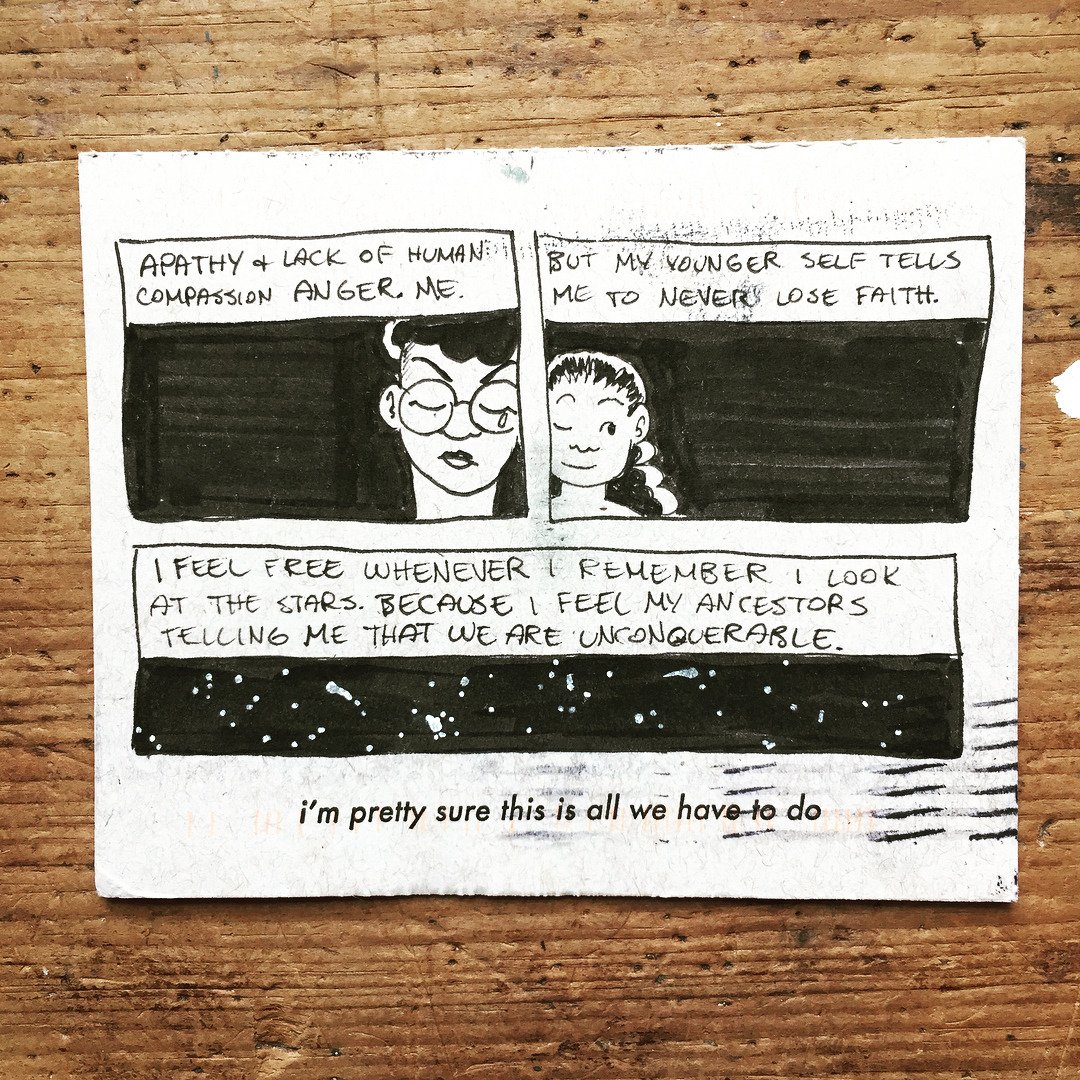 APATHY & LACK OF HUMAN
COMPASSION ANGER. ME.
BUT MY YOUNGER SELF TELLS
ME TO NEVER LOSE FAITH.
I FEEL FREE WHENEVER I REMEMBER I LOOK
AT THE STARS. BECAUSE I FEEL MY ANCESTORS
TELLING ME THAT WE ARE UNCONQUERABLE.
i'm pretty sure this is all we have to do